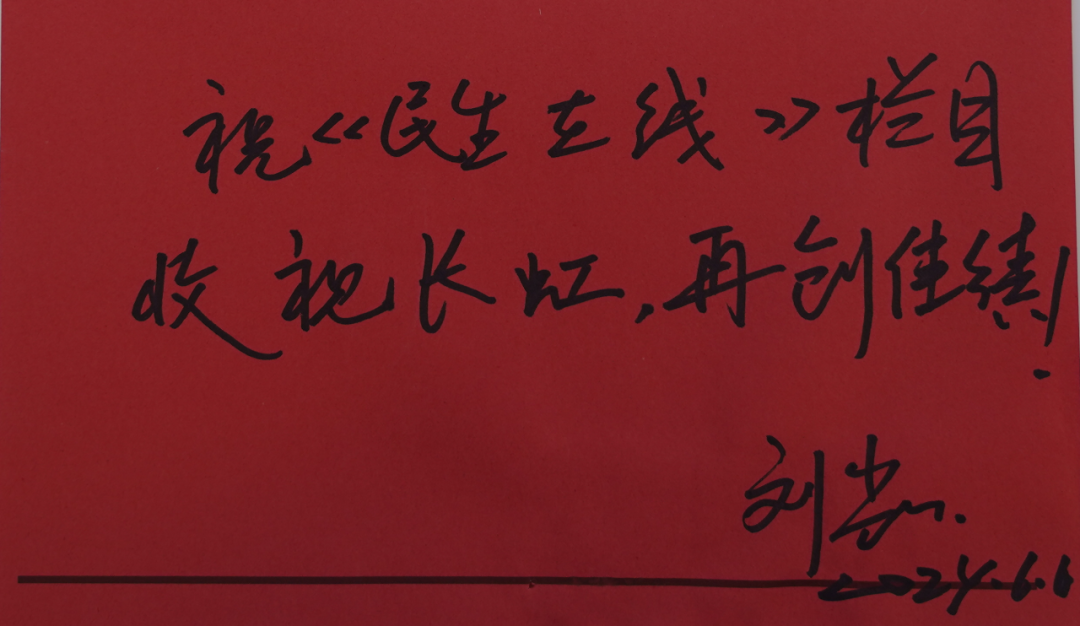 祝《民生在线》栏目
收视长虹,再创佳绩!
刘
2024.6.6